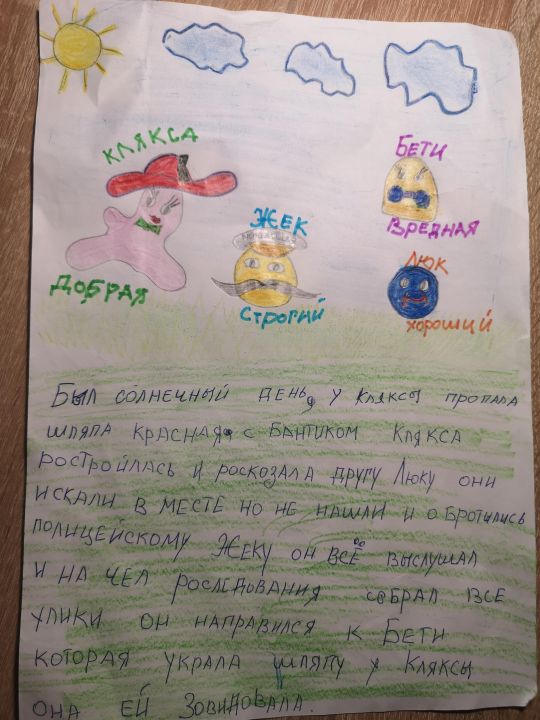 КЛЯКСА
ДОБРАЯ
ЖЕК
СТРОГИЙ
БЕТИ
ВРЕДНАЯ
ЛЮК
хороший
БЫЛ СОЛНЕЧНЫЙ ДЕНЬ, У КЛЯКСЫ ПРОПАЛА
ШЛЯПА КРАСНАЯ С БАНТИКОМ КЛЯКСА
РОСТРОИЛАСЬ И РОСКОЗАЛА ДРУГУ ЛЮКУ ОНИ
ИСКАЛИ В МЕСТЕ НО НЕ НАШЛИ И ОБРОТИЛИСЬ
ПОЛИЦЕЙСКОМУ ЖЕКУ ОН ВСЁ ВЫСЛУШАЛ
И НА ЧЕЛ РОСЛЕДОВАНИЯ СОБРАЛ ВСЕ
УЛИКИ ОН НАПРАВИЛСЯ К БЕТИ
КОТОРАЯ УКРАЛА ШЛЯПУ У КЛЯКСЫ
ОНА ЕЙ ЗОВИДОВАЛА.